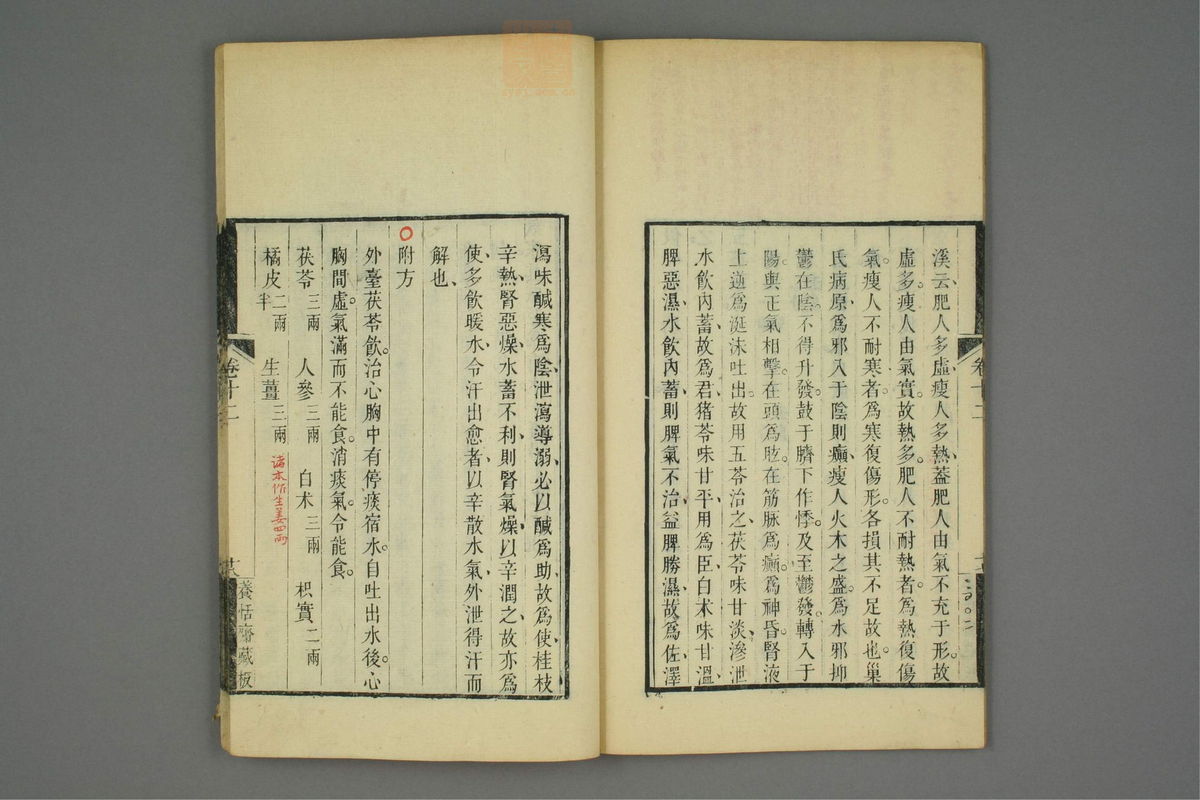 溪云肥人多虛瘦人多熱蓋肥人由氣不充于形故
虛多瘦人由氣實故熱多肥人不耐熱者爲熱復傷
氣瘦人不耐寒者爲寒復傷形各損其不足故也巢
氏病原爲邪入于陰則癲瘦人火木之盛爲水邪抑
鬱在陰不得升發鼓于臍下作悸及至鬱發轉入于
陽與正氣相擊在頭爲眩在筋脉爲癲爲神昏腎液
上逆爲涎沫吐出故用五苓治之茯苓味甘淡滲泄
水飲內蓄故爲君猪苓味甘平用爲臣白术味甘溫
脾惡濕水飲內蓄則脾氣不治益脾勝濕故爲佐澤
瀉味鹹寒爲陰泄瀉導溺必以鹹爲助故爲使桂枝
辛熱腎惡燥水蓄不利則腎氣燥以辛潤之故亦爲
使多飲暖水令汗出愈者以辛散水氣外泄得汗而
解也
附方
外臺茯苓飲治心胸中有停痰宿水自吐出水後心
胸間虛氣滿而不能食消痰氣令能食
茯苓三兩 人參三兩 白术三兩 枳實二兩
橘皮二兩半 生薑三兩 諸本作生姜四兩
卷十二
養恬齋藏板